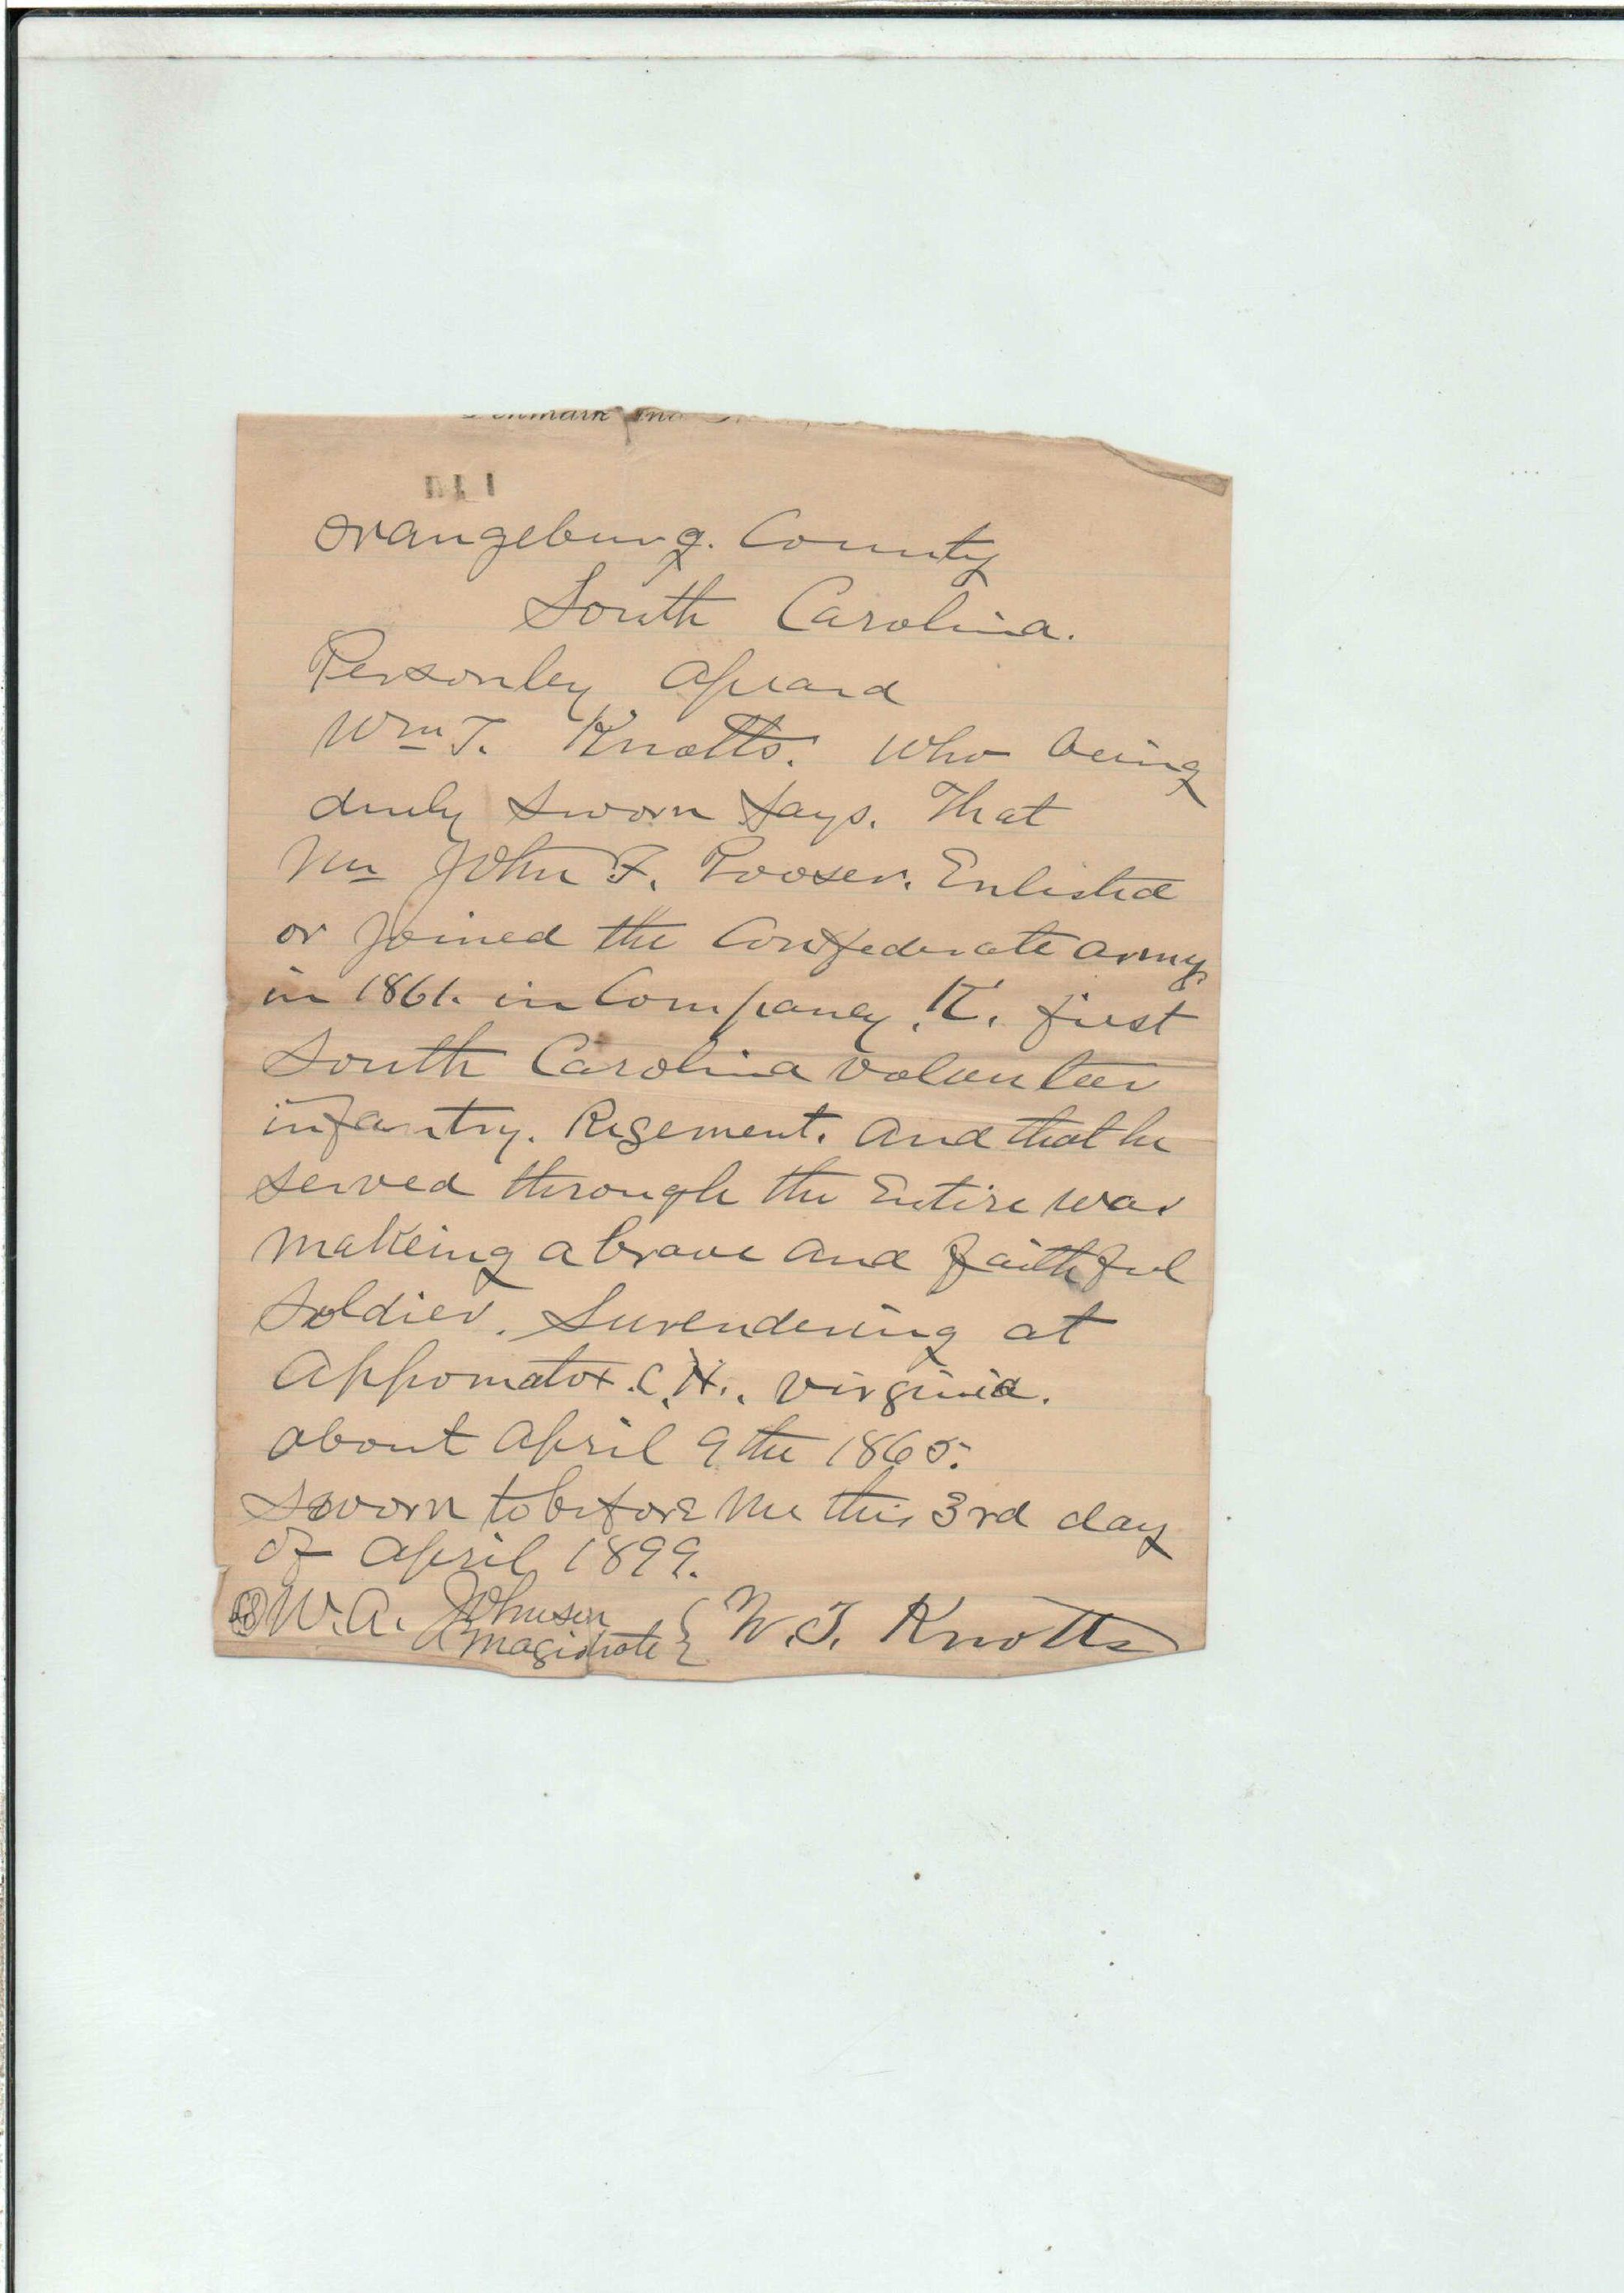 Orangeburg. County
South Carolina.
Personley Apeard
Wm T. Knotts. Who being
duuly Sworn Says. That
Mr John F. Pooser. Enlisted
or Joined the Confederate army
in 1861. in Company. K. first
South Carolina volunteer
infantry. Regement. And that he
served through the Entire war
makeing a brave and faithful
Soldier. Surendering at
Appomatox. C. H., Virginia.
about April 9the 1865.
Sworn to before me this 3rd day
of April 1899.
W. A. Johnson
Magistrate } W. T. Knotts